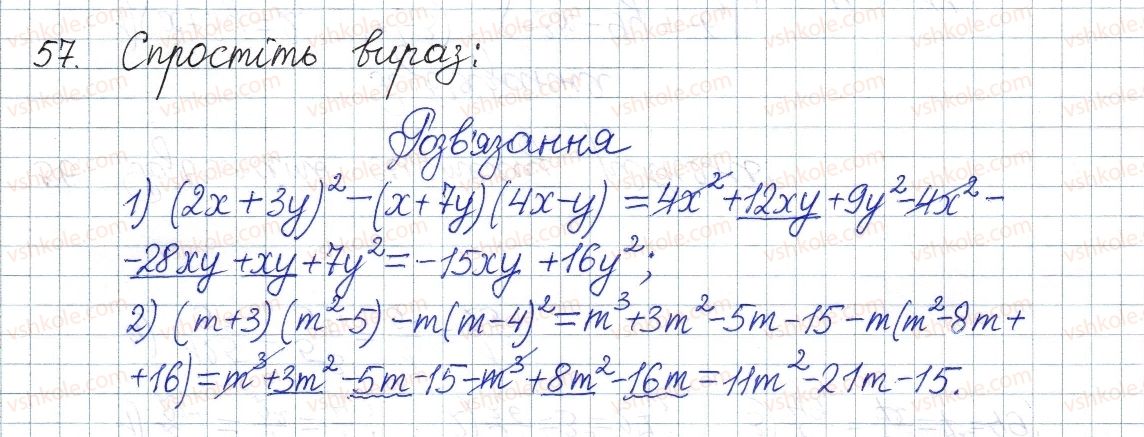 57. Спростіть вираз:
Розв'язання
1) (2x+3y)²-(x+7y)(4x-y)=4x²+12xy+9y²-4x²-
-28xy+xy+7y²=-15xy+16y²;
2) (m+3)(m²-5)-m(m-4)²=m³+3m²-5m-15-m(m²-8m+
+16)=m³+3m²-5m-15-m³+8m²-16m=11m²-21m-15.